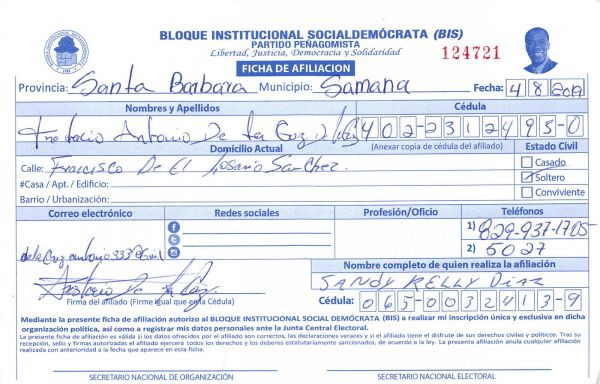 BLOQUE INSTITUCIONAL SOCIALDEMÓCRATA (BIS)
PARTIDO PEÑAGOMISTA
Libertad, Justicia, Democracia y Solidaridad
124721
FICHA DE AFILIACION
Provincia: Santa Barbara Municipio: Samana Fecha: 4 8 2019
Nombres y Apellidos Cédula
Antonio De La Cruz 402-2312495-0
Domicilio Actual (Anexar copia de cédula del afiliado) Estado Civil
Calle: Francisco De El Rosario Sanchez. Casado
#Casa / Apt. / Edificio: Soltero
Barrio / Urbanización: Conviviente
Correo electrónico Redes sociales Profesión/Oficio Teléfonos
1) 829-937-1705
2) 5027
Nombre completo de quien realiza la afiliación
SANDY KELLY DIAZ
Firma del afiliado (Firme igual que en la Cédula) Cédula: 065-0032413-9
Mediante la presente ficha de afiliación autorizo al BLOQUE INSTITUCIONAL SOCIAL DEMÓCRATA (BIS) a realizar mi inscripción única y exclusiva en dicha
organización política, así como a registrar mis datos personales ante la Junta Central Electoral.
La presente ficha de afiliación es válida si los datos ofrecidos por el afiliado son correctos, las declaraciones veraces y si el afiliado tiene el disfrute de sus derechos civiles y políticos. Tras su
recepción, sello y firmas autorizadas el afiliado ejercerá todos los derechos y los deberes estatutariamente sancionados, de acuerdo a la ley. La presente afiliación anula cualquier afiliación
realizada con anterioridad a la fecha que aparece en esta ficha.
SECRETARIO NACIONAL DE ORGANIZACIÓN SECRETARIO NACIONAL ELECTORAL